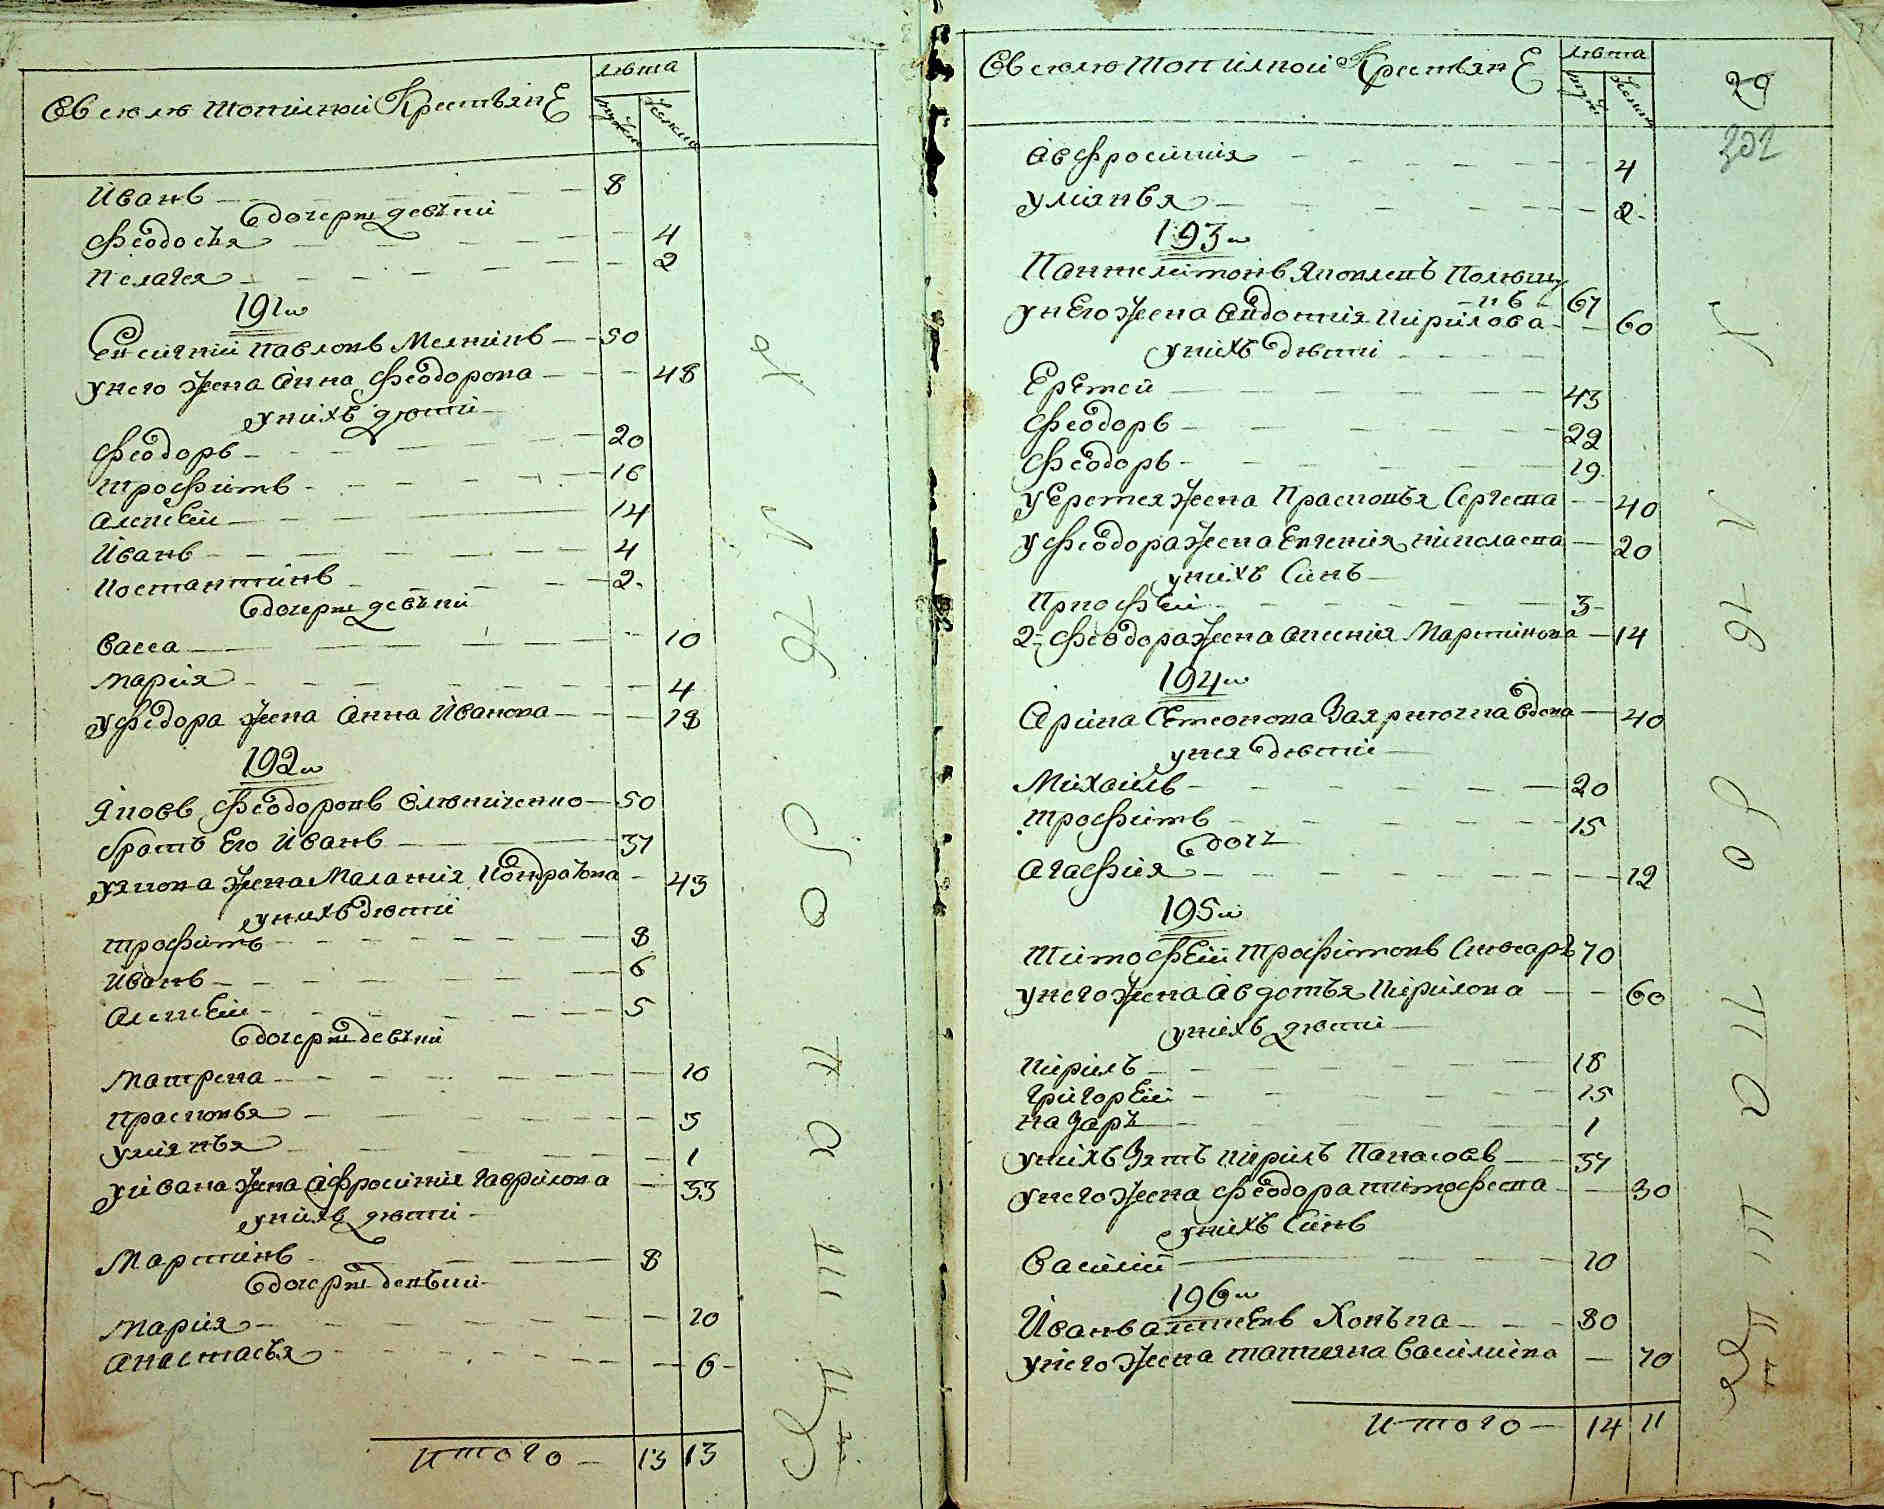 Въ селѣ Топилной Крестьянѣ
лѣта
муж женс
Иванъ 8
дочери девъки
Феодосъя 4
Пелагея 2
191й
Евсигний Павловъ Мелникъ 50
у него жена Анна Феодорова 48
у нихъ дѣти
Феодоръ 20
трофимъ 16
алексѣй 14
Иванъ 4
Костантинъ 2
дочери девъки
васса 10
мария 4
у федора жена Анна Иванова 18
192й
Яковъ Феодоровъ
братъ Его Иванъ 37
у якова жена Малания Кондратъва 43
у нихъ дѣти
трофимъ 8
иванъ 6
алексѣй 5
дочери девъки
матрена 10
прасковья 3
улиянъя 1
у ивана жена Афросиния гаврилова 33
у нихъ дѣти
Мартинъ 8
дочери девъки
мария 10
анастасъя 6
итого 13 13
Въ селѣ Топилной Крестьянѣ
лѣта
муж женс
29
Авфросиния 4
улиянъя 2
193й
Пантелимонъ Яковлевъ 67
у нЕго жена Авдотия Кирилова 60
у нихъ дѣти
Еремей 43
Феодоръ 22
Феодоръ 19
у Еремея жена Прасковья Сергеева 40
у Феодора жена Евгения николаева 20
у нихъ Синъ
Прокофѣй 3
2 Феодора жена Ксения Мартинова 14
194й
Арина Семеонова вдова 40
у нея дѣти
Михаилъ 20
трофимъ 15
дочъ
агафия 12
195й
Тимофѣй Трофимовъ Слюсаръ 70
у него жена Авдотъя Кирилова 60
у нихъ дѣти
Кирилъ 18
григорѣй 15
назаръ 1
у нихъ Зять Кирилъ Панасовъ 37
у него жена феодора тимофеева 30
у нихъ Синъ
Василий 10
196й
Иванъ алексѣевъ 80
у него жена татияна василиева 70
итого 14 11